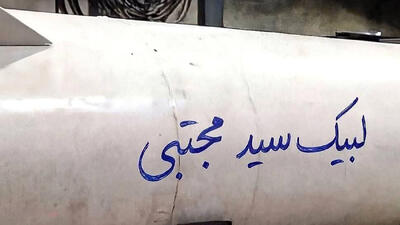 لبیک سید مجتبی